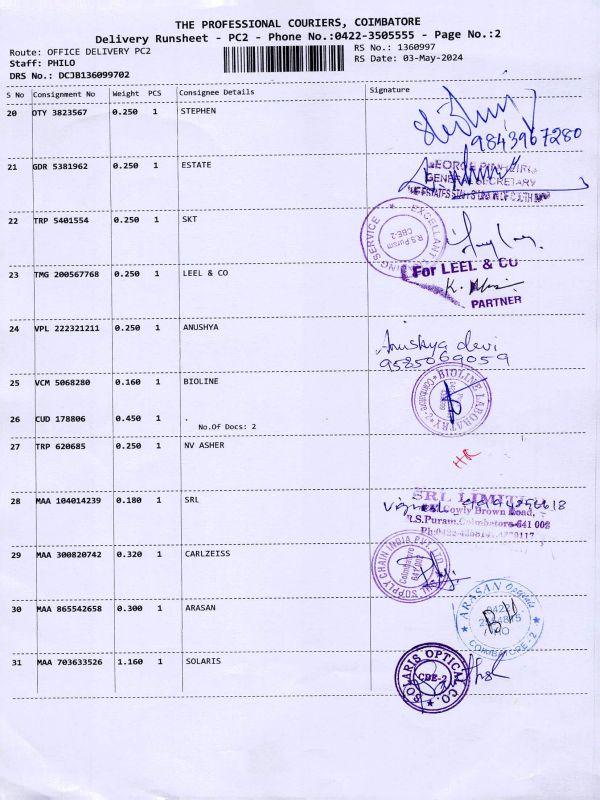 THE PROFESSIONAL COURIERS, COIMBATORE
Delivery Runsheet - PC2 - Phone No.:0422-3505555 - Page No.:2
Route: OFFICE DELIVERY PC2
RS No.: 1360997
Staff: PHILO
RS Date: 03-May-2024
DRS No.: DCJB136099702
S No Consignment No Weight PCS Consignee Details Signature
20 OTY 3823567 0.250 1 STEPHEN
9843967280
21 GDR 5381962 0.250 1 ESTATE
GENERAL SECRETARY
22 TRP 5401554 0.250 1 SKT
EXCELLANT
SERVICE
R.S Puram
CBE-2
23 TMG 200567768 0.250 1 LEEL & CO
For LEEL & CO
PARTNER
24 VPL 222321211 0.250 1 ANUSHYA
Anushya devi
9585069059
25 VCM 5068280 0.160 1 BIOLINE
BIOLINE LABORATRY
26 CUD 178806 0.450 1 .
No.Of Docs: 2
27 TRP 620685 0.250 1 NV ASHER
HR
28 MAA 104014239 0.180 1 SRL
SRL LIMITED
Cowly Brown Road,
R.S.Puram.Coimbatore-641 002
29 MAA 300820742 0.320 1 CARLZEISS
SUPPLY CHAIN INDIA PVT LTD
Coimbatore
641 002
30 MAA 865542658 0.300 1 ARASAN
ARASAN Opticals
0422
COIMBATORE-2
31 MAA 703633526 1.160 1 SOLARIS
SOLARIS OPTICAL CO.
CBE-2